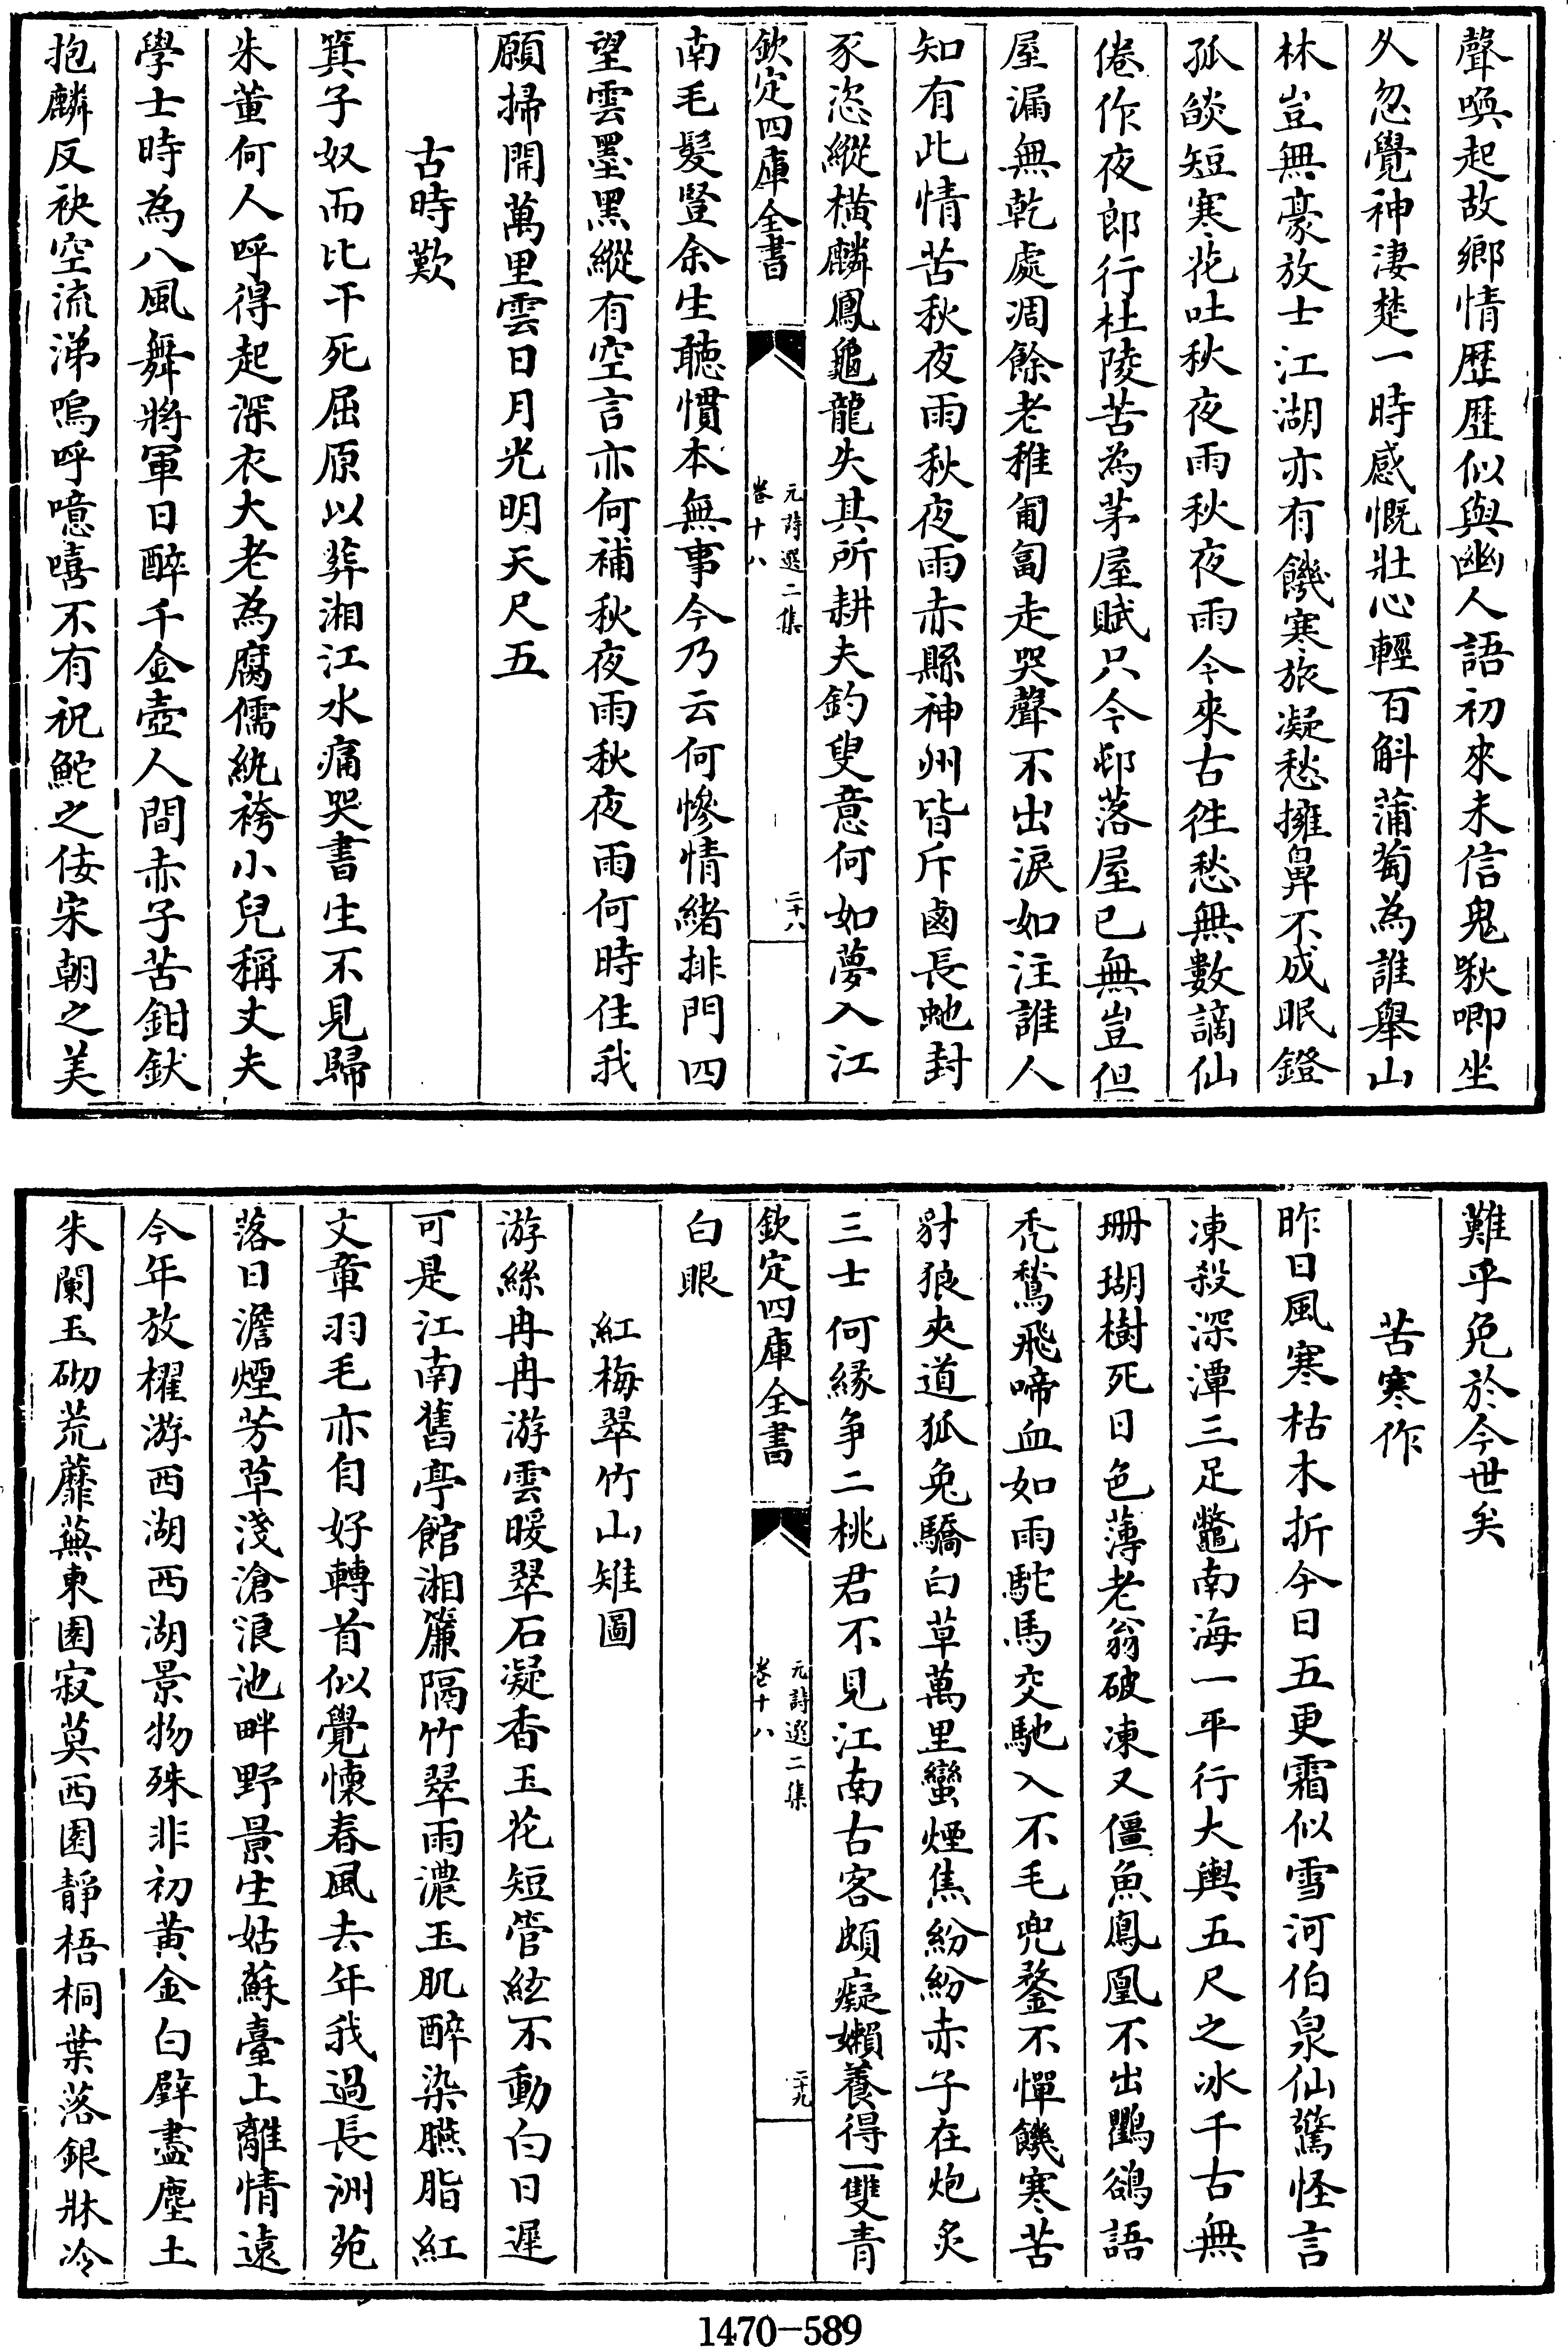 聲喚起故鄉情歷歷似與幽人語初來未信鬼啾唧坐
久忽覺神淒楚一時感慨壯心輕百斛蒲萄為誰舉山
林豈無豪放士江湖亦有饑寒旅凝愁擁鼻不成眠鐙
孤燄短寒花吐秋夜雨秋夜雨今來古徃愁無數謫仙
倦作夜郎行杜陵苦為茅屋賦只今邨落屋已無豈但
屋漏無乾處凋餘老稚匍匐走哭聲不出淚如注誰人
知有此情苦秋夜雨秋夜雨赤縣神州皆斥鹵長虵封
豕恣縱橫麟鳳龜龍失其所耕夫釣叟意何如夢入江
欽定四庫全書
元詩選二集
卷十八
二十八
南毛髮豎余生聽慣本無事今乃云何慘情緒排門四
望雲墨黑縱有空言亦何補秋夜雨秋夜雨何時住我
願掃開萬里雲日月光明天尺五
古時歎
箕子奴而比干死屈原以葬湘江水痛哭書生不見歸
朱董何人呼得起深衣大老為腐儒紈袴小兒稱丈夫
學士時為八風舞將軍日醉千金壺人間赤子苦鉗釱
抱麟反袂空流涕嗚呼噫嘻不有祝鮀之佞宋朝之美
難乎免於今世矣
苦寒作
昨日風寒枯木折今日五更霜似雪河伯泉仙驚怪言
凍殺深潭三足鼈南海一平行大輿五尺之冰千古無
珊瑚樹死日色薄老翁破凍又僵魚鳳凰不出鸜鵒語
禿鶖飛啼血如雨駝馬交馳入不毛兜鍪不憚饑寒苦
豺狼夾道狐兔驕白草萬里蠻煙焦紛紛赤子在炮炙
三士何緣爭二桃君不見江南古客頗癡嬾養得一雙青
欽定四庫全書
元詩選二集
卷十八
二十九
白眼
紅梅翠竹山雉圖
游絲冉冉游雲暖翠石凝香玉花短管絃不動白日遲
可是江南舊亭館湘簾隔竹翠雨濃玉肌醉染臙脂紅
文章羽毛亦自好轉首似覺悚春風去年我過長洲苑
落日澹煙芳草淺滄浪池畔野景生姑蘇臺上離情遠
今年放櫂游西湖西湖景物殊非初黃金白璧盡塵土
朱闌玉砌荒蘼蕪東園寂莫西園靜梧桐葉落銀牀冷
1470—589